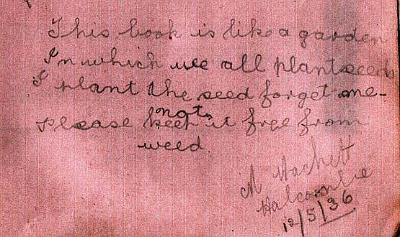 This book is like a garden
In which we all plant seeds
I plant the seed forget me-
not
Please keep it free from
weed.
A Hackett
Halcombe
12/5/36